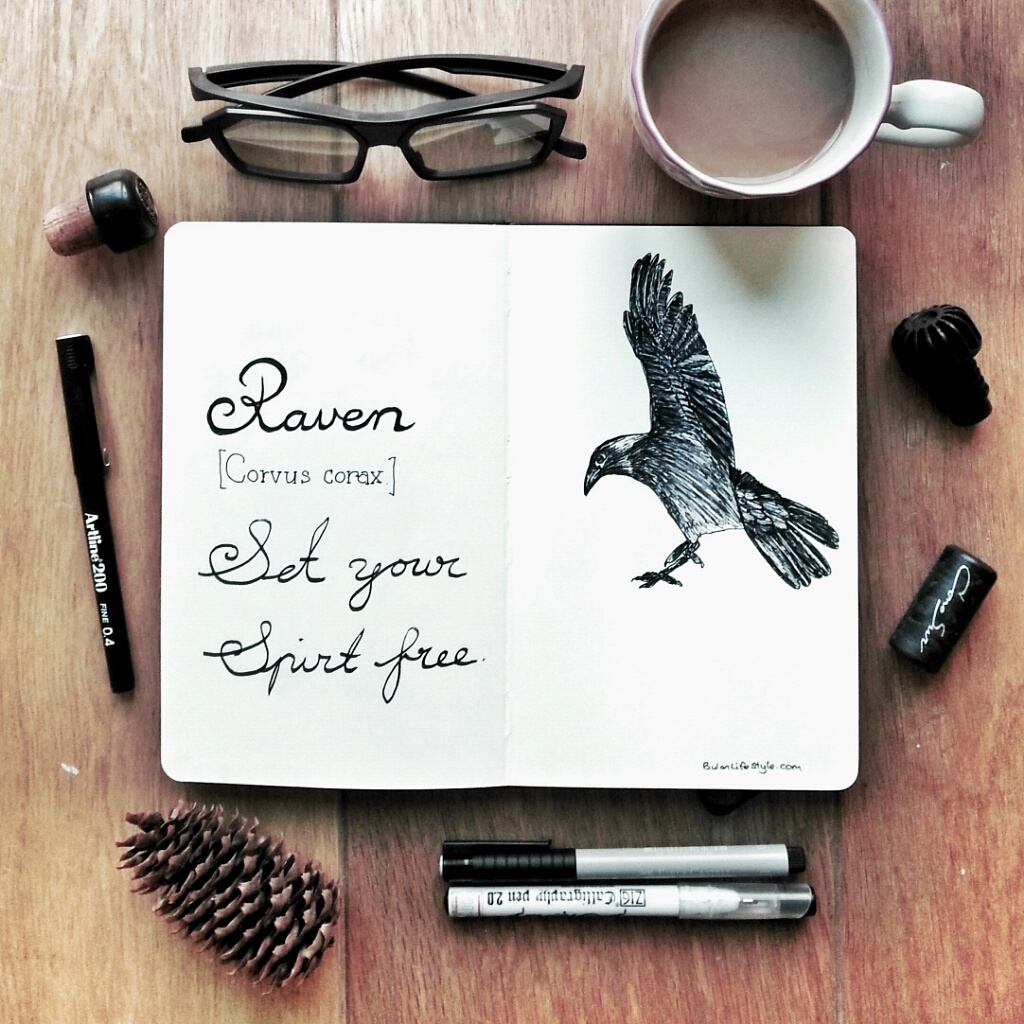 Raven
[Corvus corax.]
Set your
Spirt free.
BulanLifestyle.com
Artline 200
FINE 0.4
ZIG Calligraphy pen 2.0